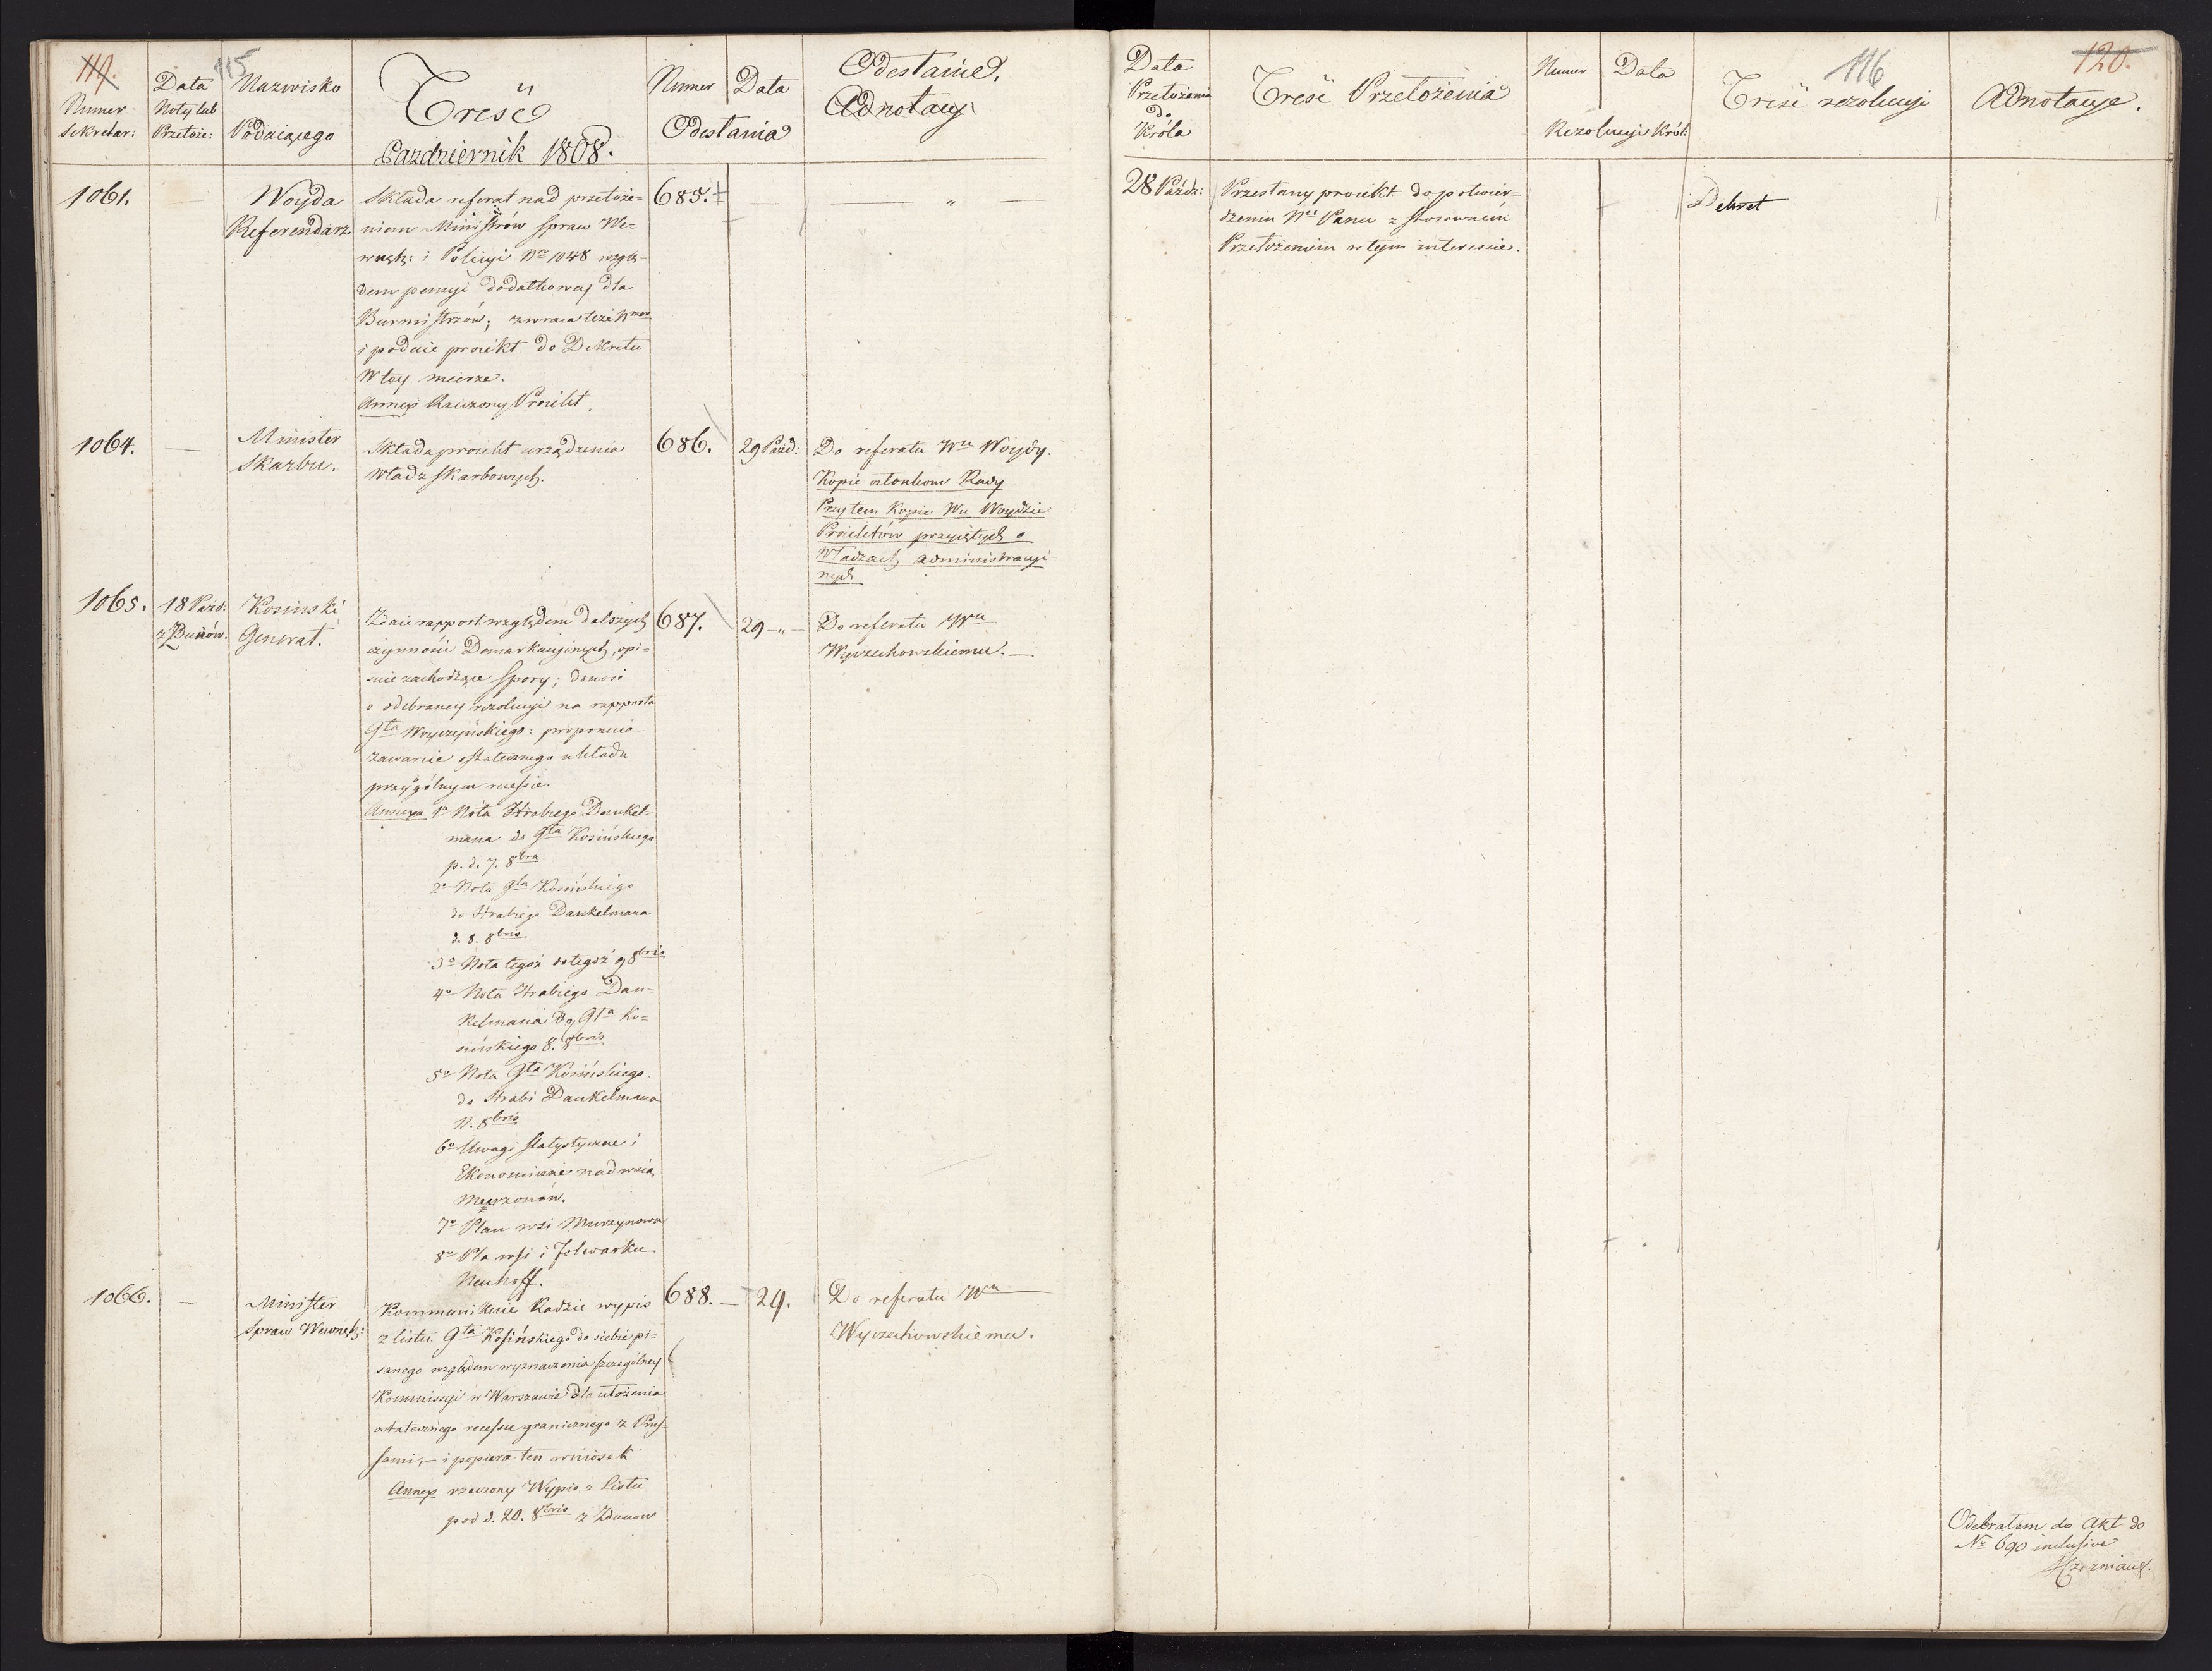 119.
115
Numer
Sekretar:
Data
Noty lub
Przełoże:
Nazwisko
Podaiącego
Treść
Pazdziernik 1808.
Numer
Data
Odesłania
Odesłanie.
Adnotacye
1061.
—
Woyda
Referendarz
Składa referat nad przełoże=
niem Ministrów spraw We=
wnętz: i Policyi Nro 1048 wzglę=
dem pensyi dodatkowey dla
Burmistrzów; zwraca tezń Nmer
i podaie proiekt do Dekretu
w tey mierze.
Annex Rzeczony Proiekt.
685.
1064.
—
Minister
Skarbu.
Składa proiekt urządzenia
Władz skarbowych.
686.
29 Paźd:
Do referatu Wu Woydy.
Kopie członkom Rady
Przytem Kopie Wu Woydzie
Proiektów przyiętych o
Władzach administracyi=
nych
1065.
18 Paźd:
z Zdunów.
Kosinski
Generał.
Zdaie rapport względem dalszych
czynności Demarkacyinych, opi=
suie zachodzące spory; donosi
o odebraney rezolucyi na rapporta
Gła Woyczyńskiego: proponuie
zawarcie ostatecznego układu
przy gólnym recessie.
Annexa 1o Nota Hrabiego Dankel=
mana do Gła Kosińskiego
p. d. 7. 8bra
2o Nota Gła Kosińskiego
do Hrabiego Dankelmana
d. 8. 8bris
3o Nota tegoż do tegoż 9 8bris
4o Nota Hrabiego Dan=
kelmana do Gła Ko=
sińskiego 8. 8bris
5o Nota Gła Kosińskiego
do Hrabi Dankelmana
11. 8bris
6o Uwagi statystyczne i
Ekonomiczne nad wsią
Murzonów.
7o Plan wsi Murzynowa
8o Pla wsi i folwarku
Neuhoff.
687.
29 — „ —
Do referatu Wu
Wyczechowskiemu. —
1066.
—
Minister
Spraw Wewnętz:
Kommunikuie Radzie wypis
z listu Gła Kosińskiego do siebie pi=
sanego względem wyznaczenia szczególney
Kommissyi w Warszawie dla ułożenia
ostatecznego recessu granicznego z Prus=
sami, — i popiera ten wniosek
Annex rzeczony Wypis z Listu
pod d. 20. 8bris z Zdunow
688. —
29.
Do referatu Wu
Wyczechowskiemu.
Data
Przełożenia
do
Króla
Treść Przełożenia
Numer
Data
Rezolucyi Król:
116
Treść rezolucyi
120.
Adnotacye.
28 Paźdz:
Przesłany proiekt do potwier=
dzenia Nu Panu z stosownem
Przełożeniem w tym interessie.
Dekret
Odebrałem do Akt do
No 690 inclusive